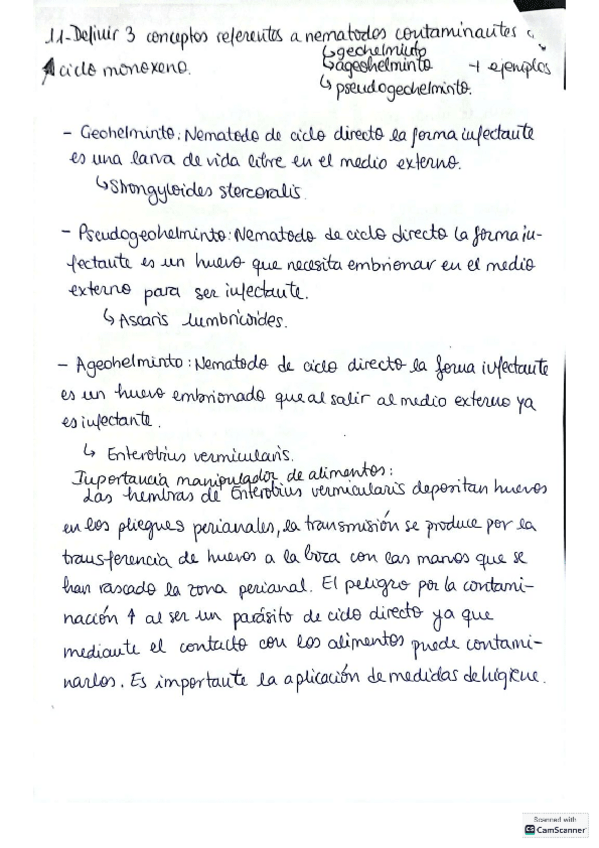 11-Definir 3 conceptos referentes a nematodos contaminantes
↳geohelminto
ciclo monoxeno. ↳ageohelminto + ejemplos
↳pseudogeohelminto.
- Geohelminto: Nematodo de ciclo directo la forma infectante
es una larva de vida libre en el medio externo.
↳Strongyloides stercoralis.
- Pseudogeohelminto: Nematodo de ciclo directo la forma in-
fectante es un huevo que necesita embrionar en el medio
externo para ser infectante.
↳ Ascaris lumbricoides.
- Ageohelminto: Nematodo de ciclo directo la forma infectante
es un huevo embrionado que al salir al medio externo ya
es infectante.
↳ Enterobius vermicularis.
Importancia manipulador de alimentos:
Las hembras de Enterobius vermicularis depositan huevos
en los pliegues perianales, la transmisión se produce por la
transferencia de huevos a la boca con las manos que se
han rascado la zona perianal. El peligro por la contami-
nación ↑ al ser un parásito de ciclo directo ya que
mediante el contacto con los alimentos puede contami-
narlos. Es importante la aplicación de medidas de higiene.
Scanned with
CS CamScanner